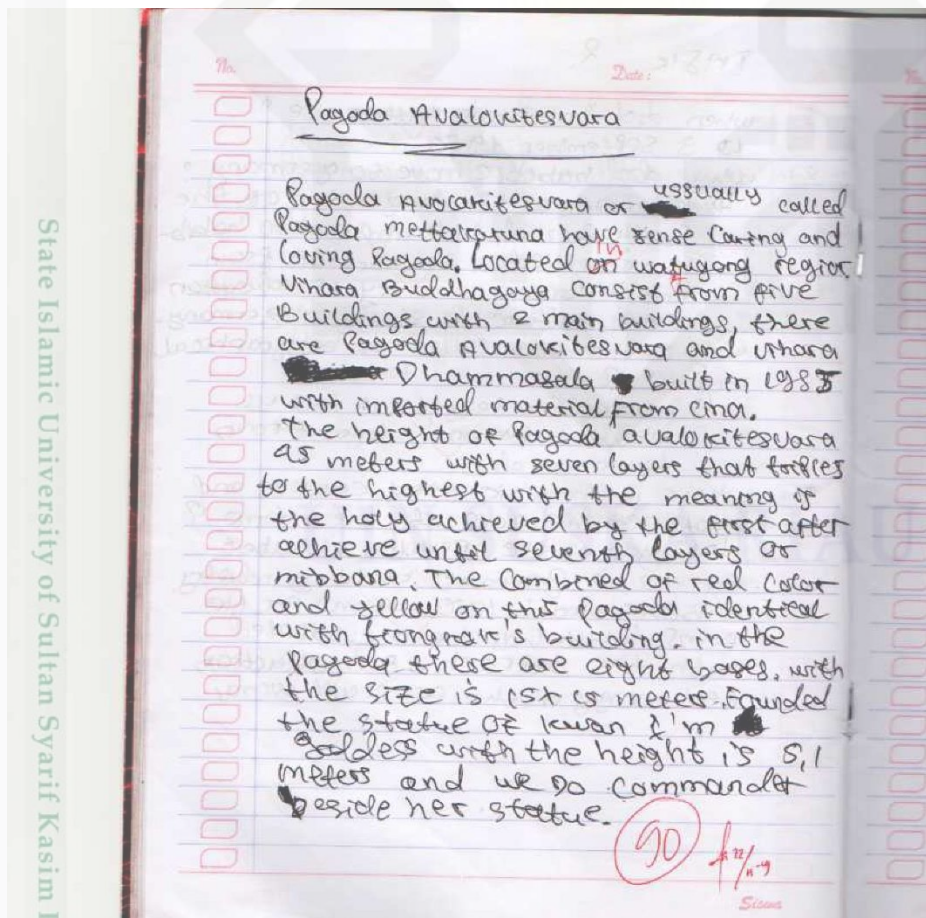 No.
Date:
Pagoda Avalokitesvara
Pagoda Avolakitesvara or ussually called
Pagoda mettakaruna have sense Caring and
loving Pagoda. Located on in watugong region.
Vihara Buddhagaya consist from five
Buildings with 2 main buildings, there
are Pagoda Avalokitesvara and vihara
Dhammasala built in 1985
with imported material from cina.
The height of Pagoda avalokitesvara
45 meters with seven layers that
to the highest with the meaning is
the holy achieved by the first after
achieve until seventh layers or
nibbana. The Combined of red Color
and yellow on this Pagoda identical
with building. in the
Pagoda there are eight bases. with
the size is 15 x 15 meters. Founded
the statue of kwan I'm
Goddess with the height is 5,1
meters and we Do commander
beside her statue.
90
Siswa
State Islamic University of Sultan Syarif Kasim